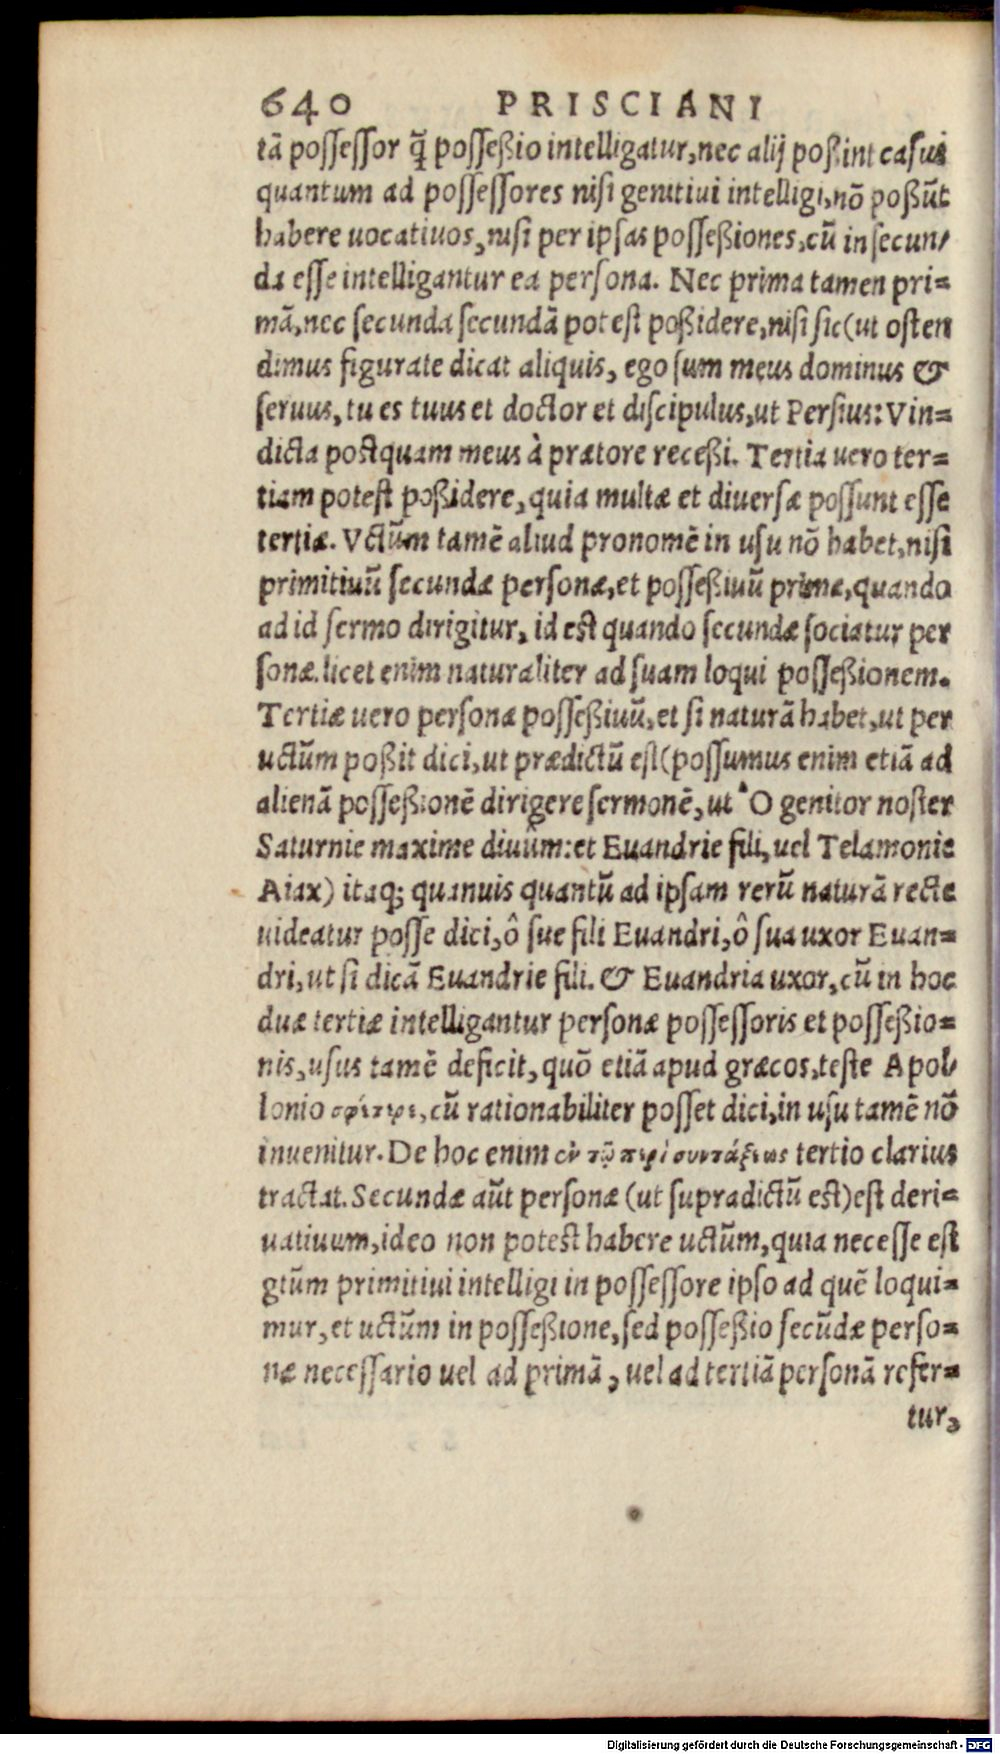 640 PRISCIANI
tā possessor q̄ posseßio intelligatur, nec alij poßint casus
quantum ad possessores nisi genitiui intelligi, nō poßūt
habere uocatiuos, nisi per ipsas posseßiones, cū in secun/
da esse intelligantur ea persona. Nec prima tamen pri=
mā, nec secunda secundā potest poßidere, nisi sic (ut osten
dimus figurate dicat aliquis, ego sum meus dominus &
seruus, tu es tuus et doctor et discipulus, ut Persius: Vin=
dicta postquam meus à prætore receßi. Tertia uero ter=
tiam potest poßidere, quia multæ et diuersæ possunt esse
tertiæ. Vctūm tamē aliud pronomē in usu nō habet, nisi
primitiuū secundæ personæ, et possesßiuū primæ, quando
ad id sermo dirigitur, id est quando secundæ sociatur per
sonæ. licet enim naturaliter ad suam loqui possesßionem.
Tertiæ uero personæ possesßiuū, et si naturā habet, ut per
uctūm poßit dici, ut prædictū est (possumus enim etiā ad
alienā possesßionē dirigere sermonē, ut O genitor noster
Saturnie maxime diuûm: et Euandrie fili, uel Telamonie
Aiax) itaq; quanuis quantū ad ipsam rerū naturā recte
uideatur posse dici, ô sue fili Euandri, ô sua uxor Euan=
dri, ut si dicā Euandrie fili. & Euandria uxor, cū in hoc
duæ tertiæ intelligantur personæ possessoris et possesßio=
nis, usus tamē deficit, quō etiā apud græcos, teste Apol/
lonio σφέτερε, cū rationabiliter posset dici, in usu tamē nō
inuenitur. De hoc enim ἐν τῷ περὶ συντάξεως tertio clarius
tractat. Secundæ aūt personæ (ut supradictū est) est deri=
uatiuum, ideo non potest habere uctūm, quia necesse est
gtūm primitiui intelligi in possessore ipso ad quē loqui=
mur, et uctūm in possesßione, sed possesßio secūdæ perso=
næ necessario uel ad primā, uel ad tertiā personā refer=
tur,
Digitalisierung gefördert durch die Deutsche Forschungsgemeinschaft - DFG